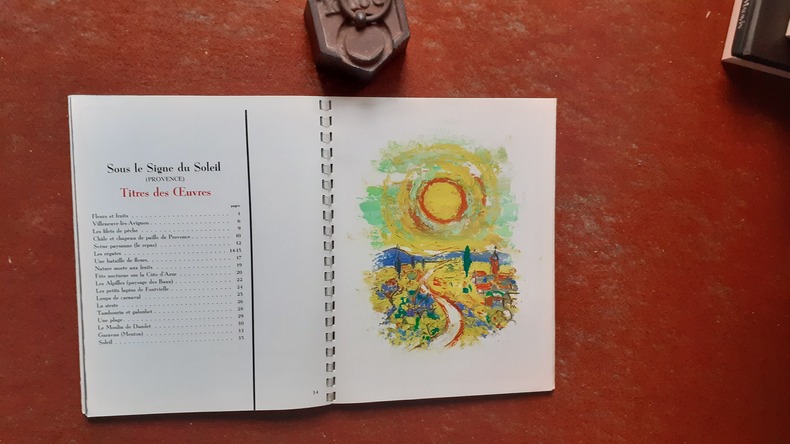 Sous le Signe du Soleil
(PROVENCE)
Titres des Œuvres
pages
Fleurs et fruits 4
Villeneuve-les-Avignon 6
Les filets de pêche 9
Châle et chapeau de paille de Provence 10
Scène paysanne (le repas) 12
Les régates 14-15
Une bataille de fleurs 17
Nature morte aux fruits 19
Fête nocturne sur la Côte d'Azur 20
Les Alpilles (paysage des Baux) 22
Les petits lapins de Fontvielle 24
Loups de carnaval 25
La sieste 26
Tambourin et galoubet 28
Une plage 29
Le Moulin de Daudet
Garavan (Menton)
Soleil
34